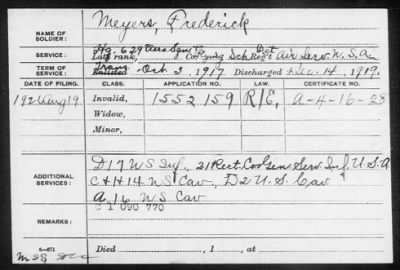 NAME OF SOLDIER: Meyers, Frederick
SERVICE: Hq. 629 Aero Squ to
Late rank, Co. Sch Reg't Det Air Serv. U.S.A.
TERM OF SERVICE: Enlisted Oct 3, 1917 Discharged Dec. 14, 1919.
DATE OF FILING. CLASS. APPLICATION NO. CERTIFICATE NO.
1926 Aug 19 Invalid, 1552 159 R/E, A-4-16-28
Widow,
Minor,
ADDITIONAL SERVICES: D 17 US Inf., 21 Rect. Co. Gen Serv. Inf. U.S.A
C & H 14 US Cav, D 2 U.S. Cav
A 16 US Cav
C 1 090 770
REMARKS:
Died , 1 , at